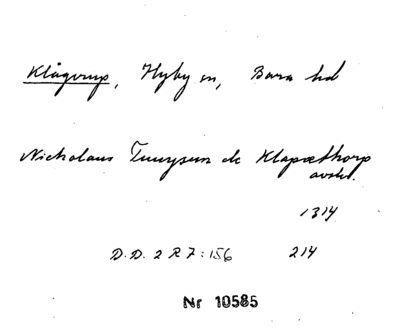 Klågerup, Hyby sn, Bara hd
Nicholaus Tuuysun de Klapæthorp
avskr.
1314
D.D. 2 R 7:156 214
Nr 10585